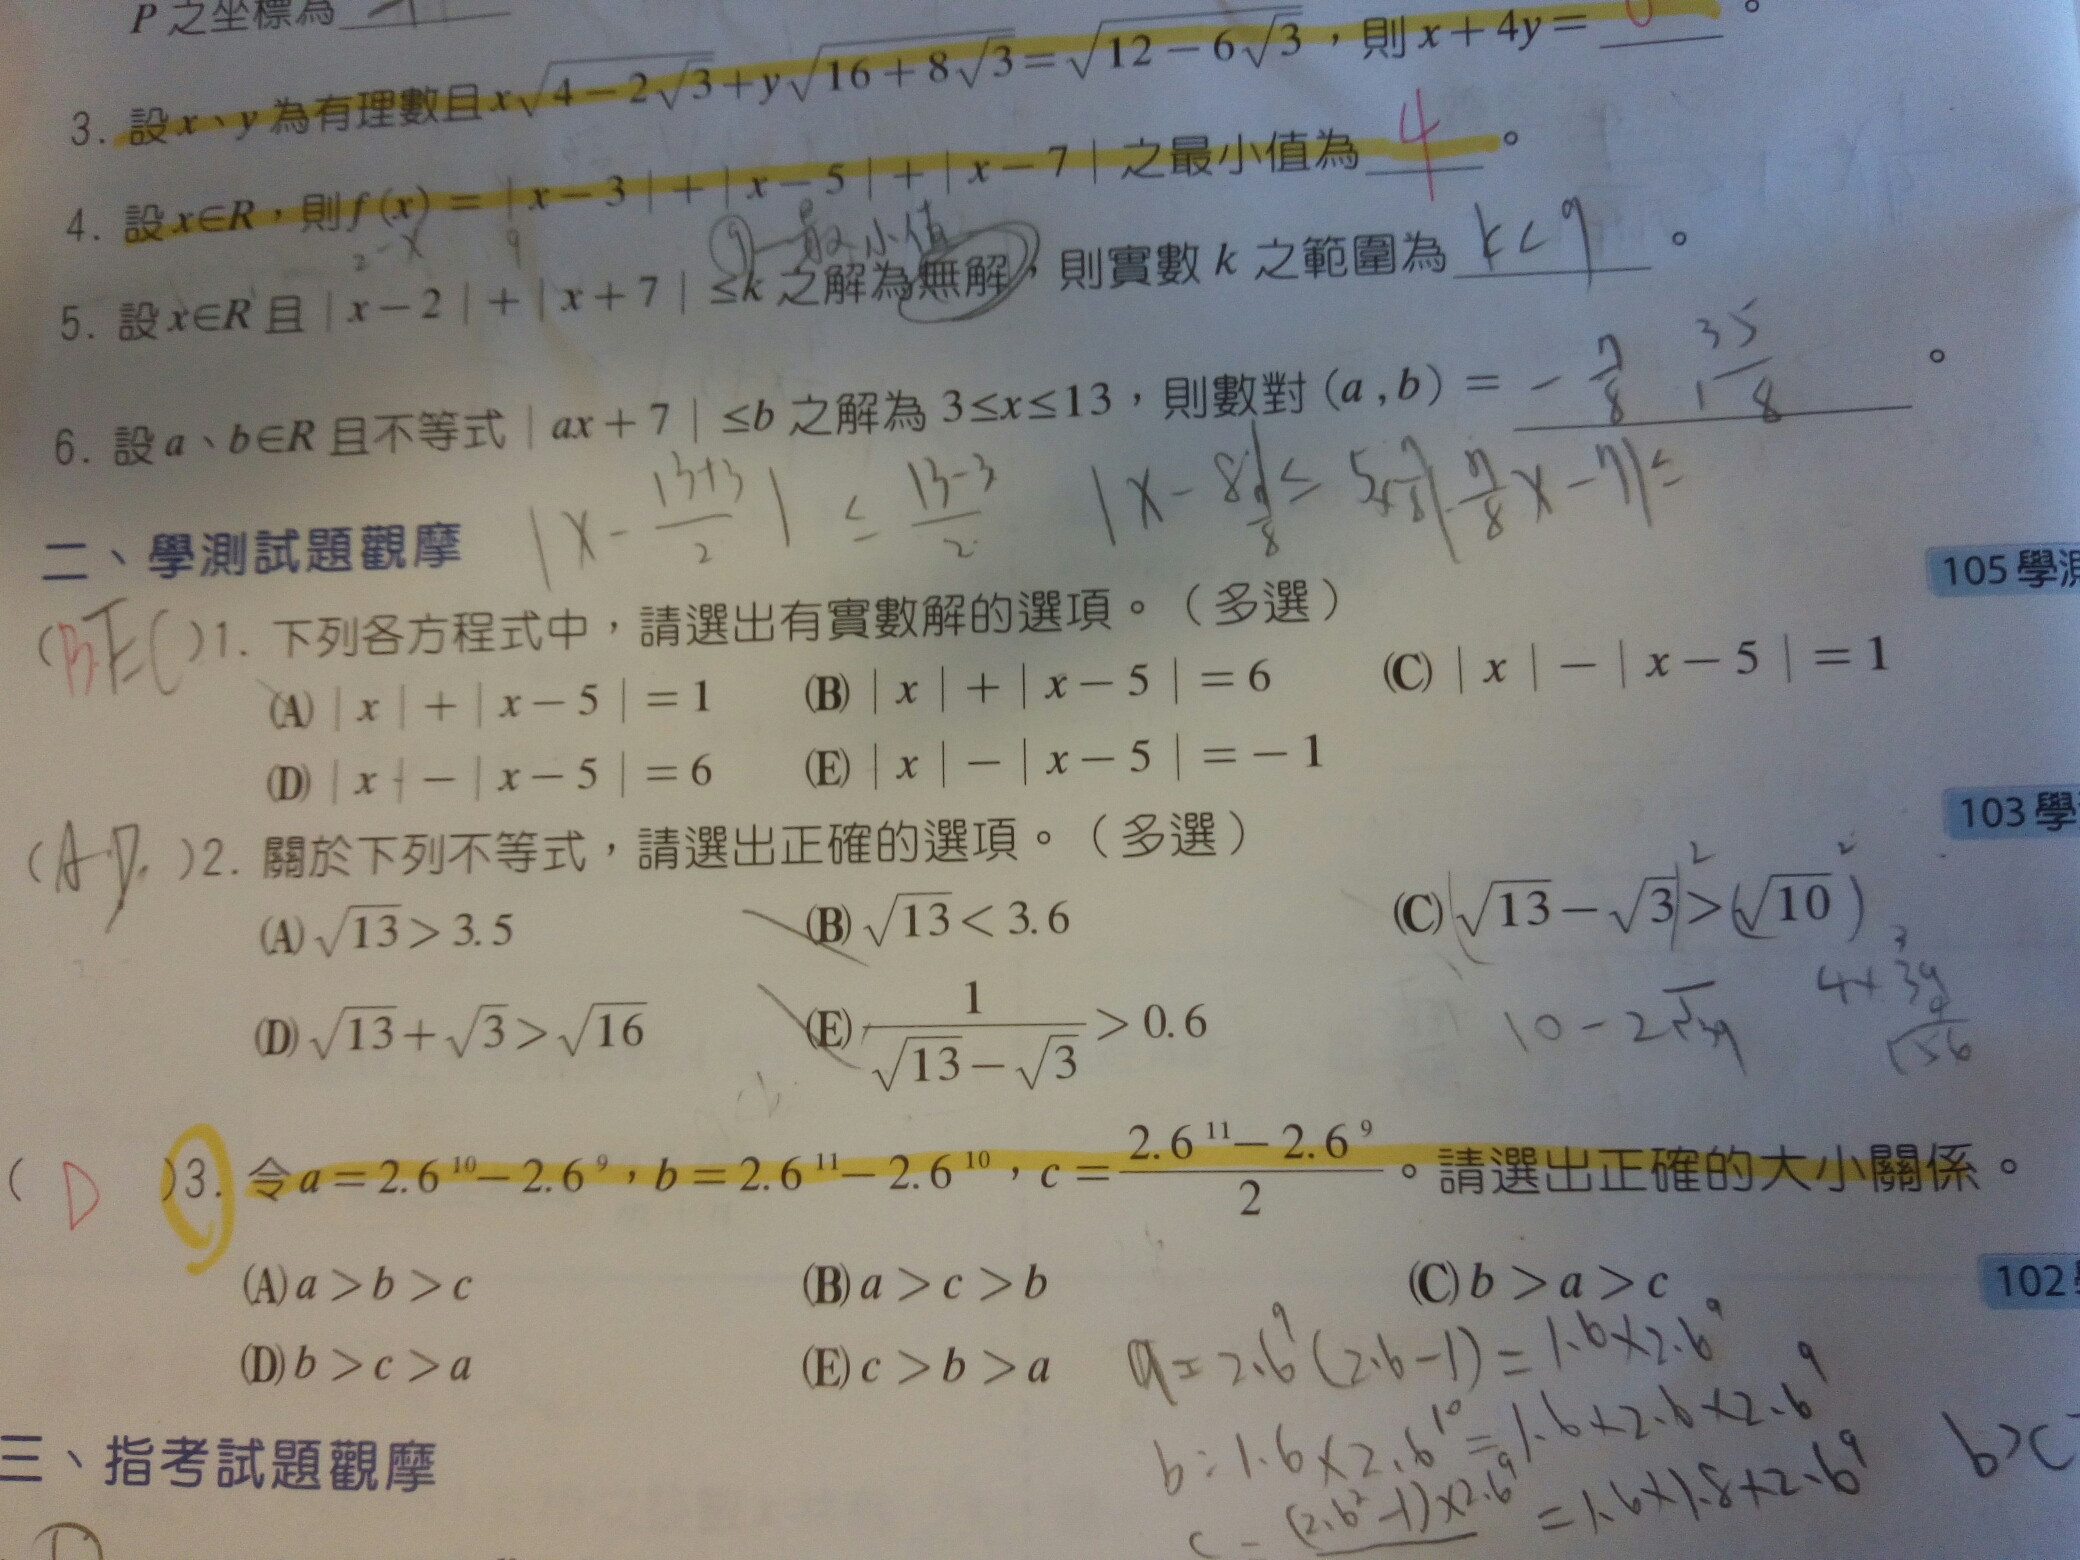 P 之坐標為
3. 設 x、y 為有理數且 x√(4－2√3)+y√(16+8√3)=√(12－6√3)，則 x+4y= 0 。
4. 設 x∈R，則 f(x) = |x－3|+|x－5|+|x－7| 之最小值為 4 。
2-x 9 9 最小值
5. 設 x∈R 且 |x－2|+|x+7| ≤k 之解為無解，則實數 k 之範圍為 k<9 。
6. 設 a、b∈R 且不等式 |ax+7| ≤b 之解為 3≤x≤13，則數對 (a,b) = －7/8 , 35/8 。
|x－(13+3)/2| ≤ (13－3)/2
二、學測試題觀摩
105 學測
(BEC)1. 下列各方程式中，請選出有實數解的選項。（多選）
(A) |x|+|x－5|=1 (B) |x|+|x－5|=6 (C) |x|－|x－5|=1
(D) |x|－|x－5|=6 (E) |x|－|x－5|=－1
103 學
(A.D.)2. 關於下列不等式，請選出正確的選項。（多選）
(A) √13>3.5 (B) √13<3.6 (C) (√13－√3)²>(√10)²
(D) √13+√3>√16 (E) 1/(√13－√3)>0.6
4×39
10－2√39
156
(D)3. 令 a=2.6¹⁰－2.6⁹，b=2.6¹¹－2.6¹⁰，c=(2.6¹¹－2.6⁹)/2。請選出正確的大小關係。
(A) a>b>c (B) a>c>b (C) b>a>c
102
(D) b>c>a (E) c>b>a
a=2.6⁹(2.6－1)=1.6×2.6⁹
b=1.6×2.6¹⁰=1.6×2.6×2.6⁹
b>c
c=(2.6²－1)×2.6⁹ =1.6×1.8×2.6⁹
三、指考試題觀摩